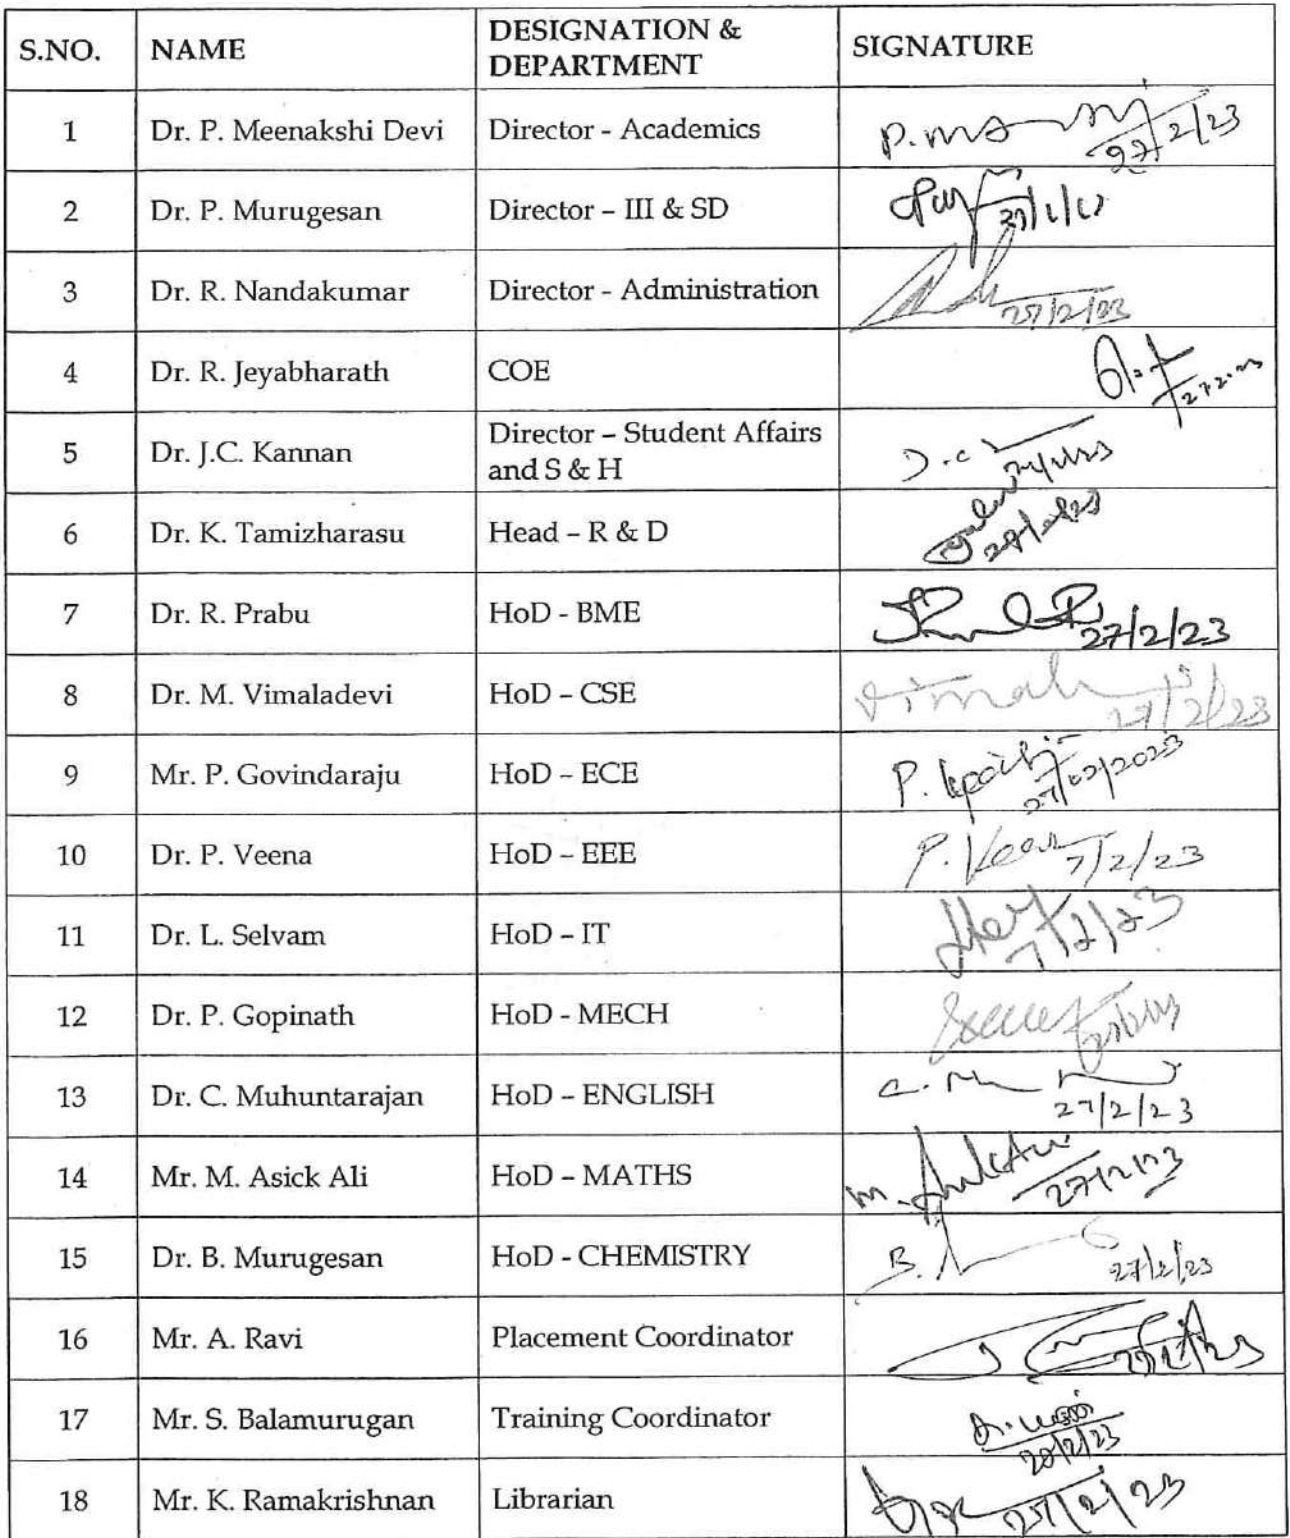 S.NO. NAME DESIGNATION & DEPARTMENT SIGNATURE
1 Dr. P. Meenakshi Devi Director - Academics 27/2/23
2 Dr. P. Murugesan Director – III & SD
3 Dr. R. Nandakumar Director - Administration 27/2/23
4 Dr. R. Jeyabharath COE
5 Dr. J.C. Kannan Director – Student Affairs and S & H
6 Dr. K. Tamizharasu Head – R & D
7 Dr. R. Prabu HoD - BME 27/2/23
8 Dr. M. Vimaladevi HoD – CSE 27/2/23
9 Mr. P. Govindaraju HoD – ECE 27/02/2023
10 Dr. P. Veena HoD – EEE 7/2/23
11 Dr. L. Selvam HoD – IT 7/2/23
12 Dr. P. Gopinath HoD - MECH
13 Dr. C. Muhuntarajan HoD – ENGLISH 27/2/23
14 Mr. M. Asick Ali HoD – MATHS
15 Dr. B. Murugesan HoD - CHEMISTRY 27/2/23
16 Mr. A. Ravi Placement Coordinator
17 Mr. S. Balamurugan Training Coordinator
18 Mr. K. Ramakrishnan Librarian